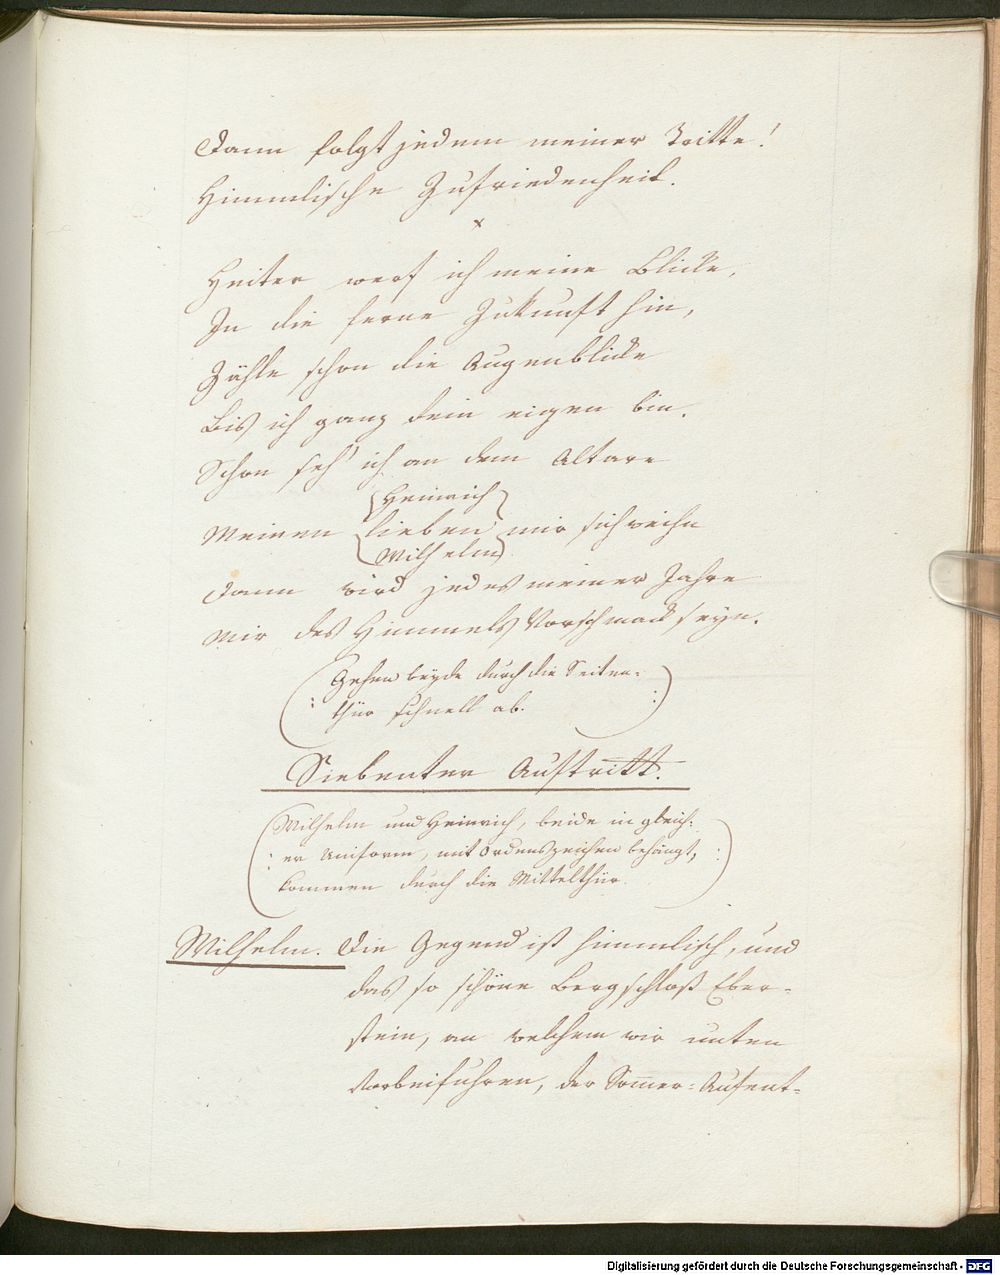 Dann folgt jedem meiner Tritte!
Himmlische Zufriedenheit.
x
Heiter werf ich meine Blicke,
In die ferne Zukunft hin,
Zähle schon die Augenblicke
Bis ich ganz dein eigen bin.
Schon seh' ich an dem Altare
Heinrich
Meinen lieben mir sich weihn
Wilhelm
Dann wird jedes meiner Jahre
Mir des Himmels Vorschmack seyn.
(Gehen beyde durch die Seiten=
: thür schnell ab. :)
Siebenter Auftritt.
(Wilhelm und Heinrich, beide in gleich:
: er Uniform, mit Ordenszeichen behängt, :
kommen durch die Mittelthür.)
Wilhelm. Die Gegend ist himmlisch, und
das so schöne Bergschloß Eber-
stein, an welchem wir unten
vorbeifuhren, der Sommer=Aufent=
Digitalisierung gefördert durch die Deutsche Forschungsgemeinschaft - DFG